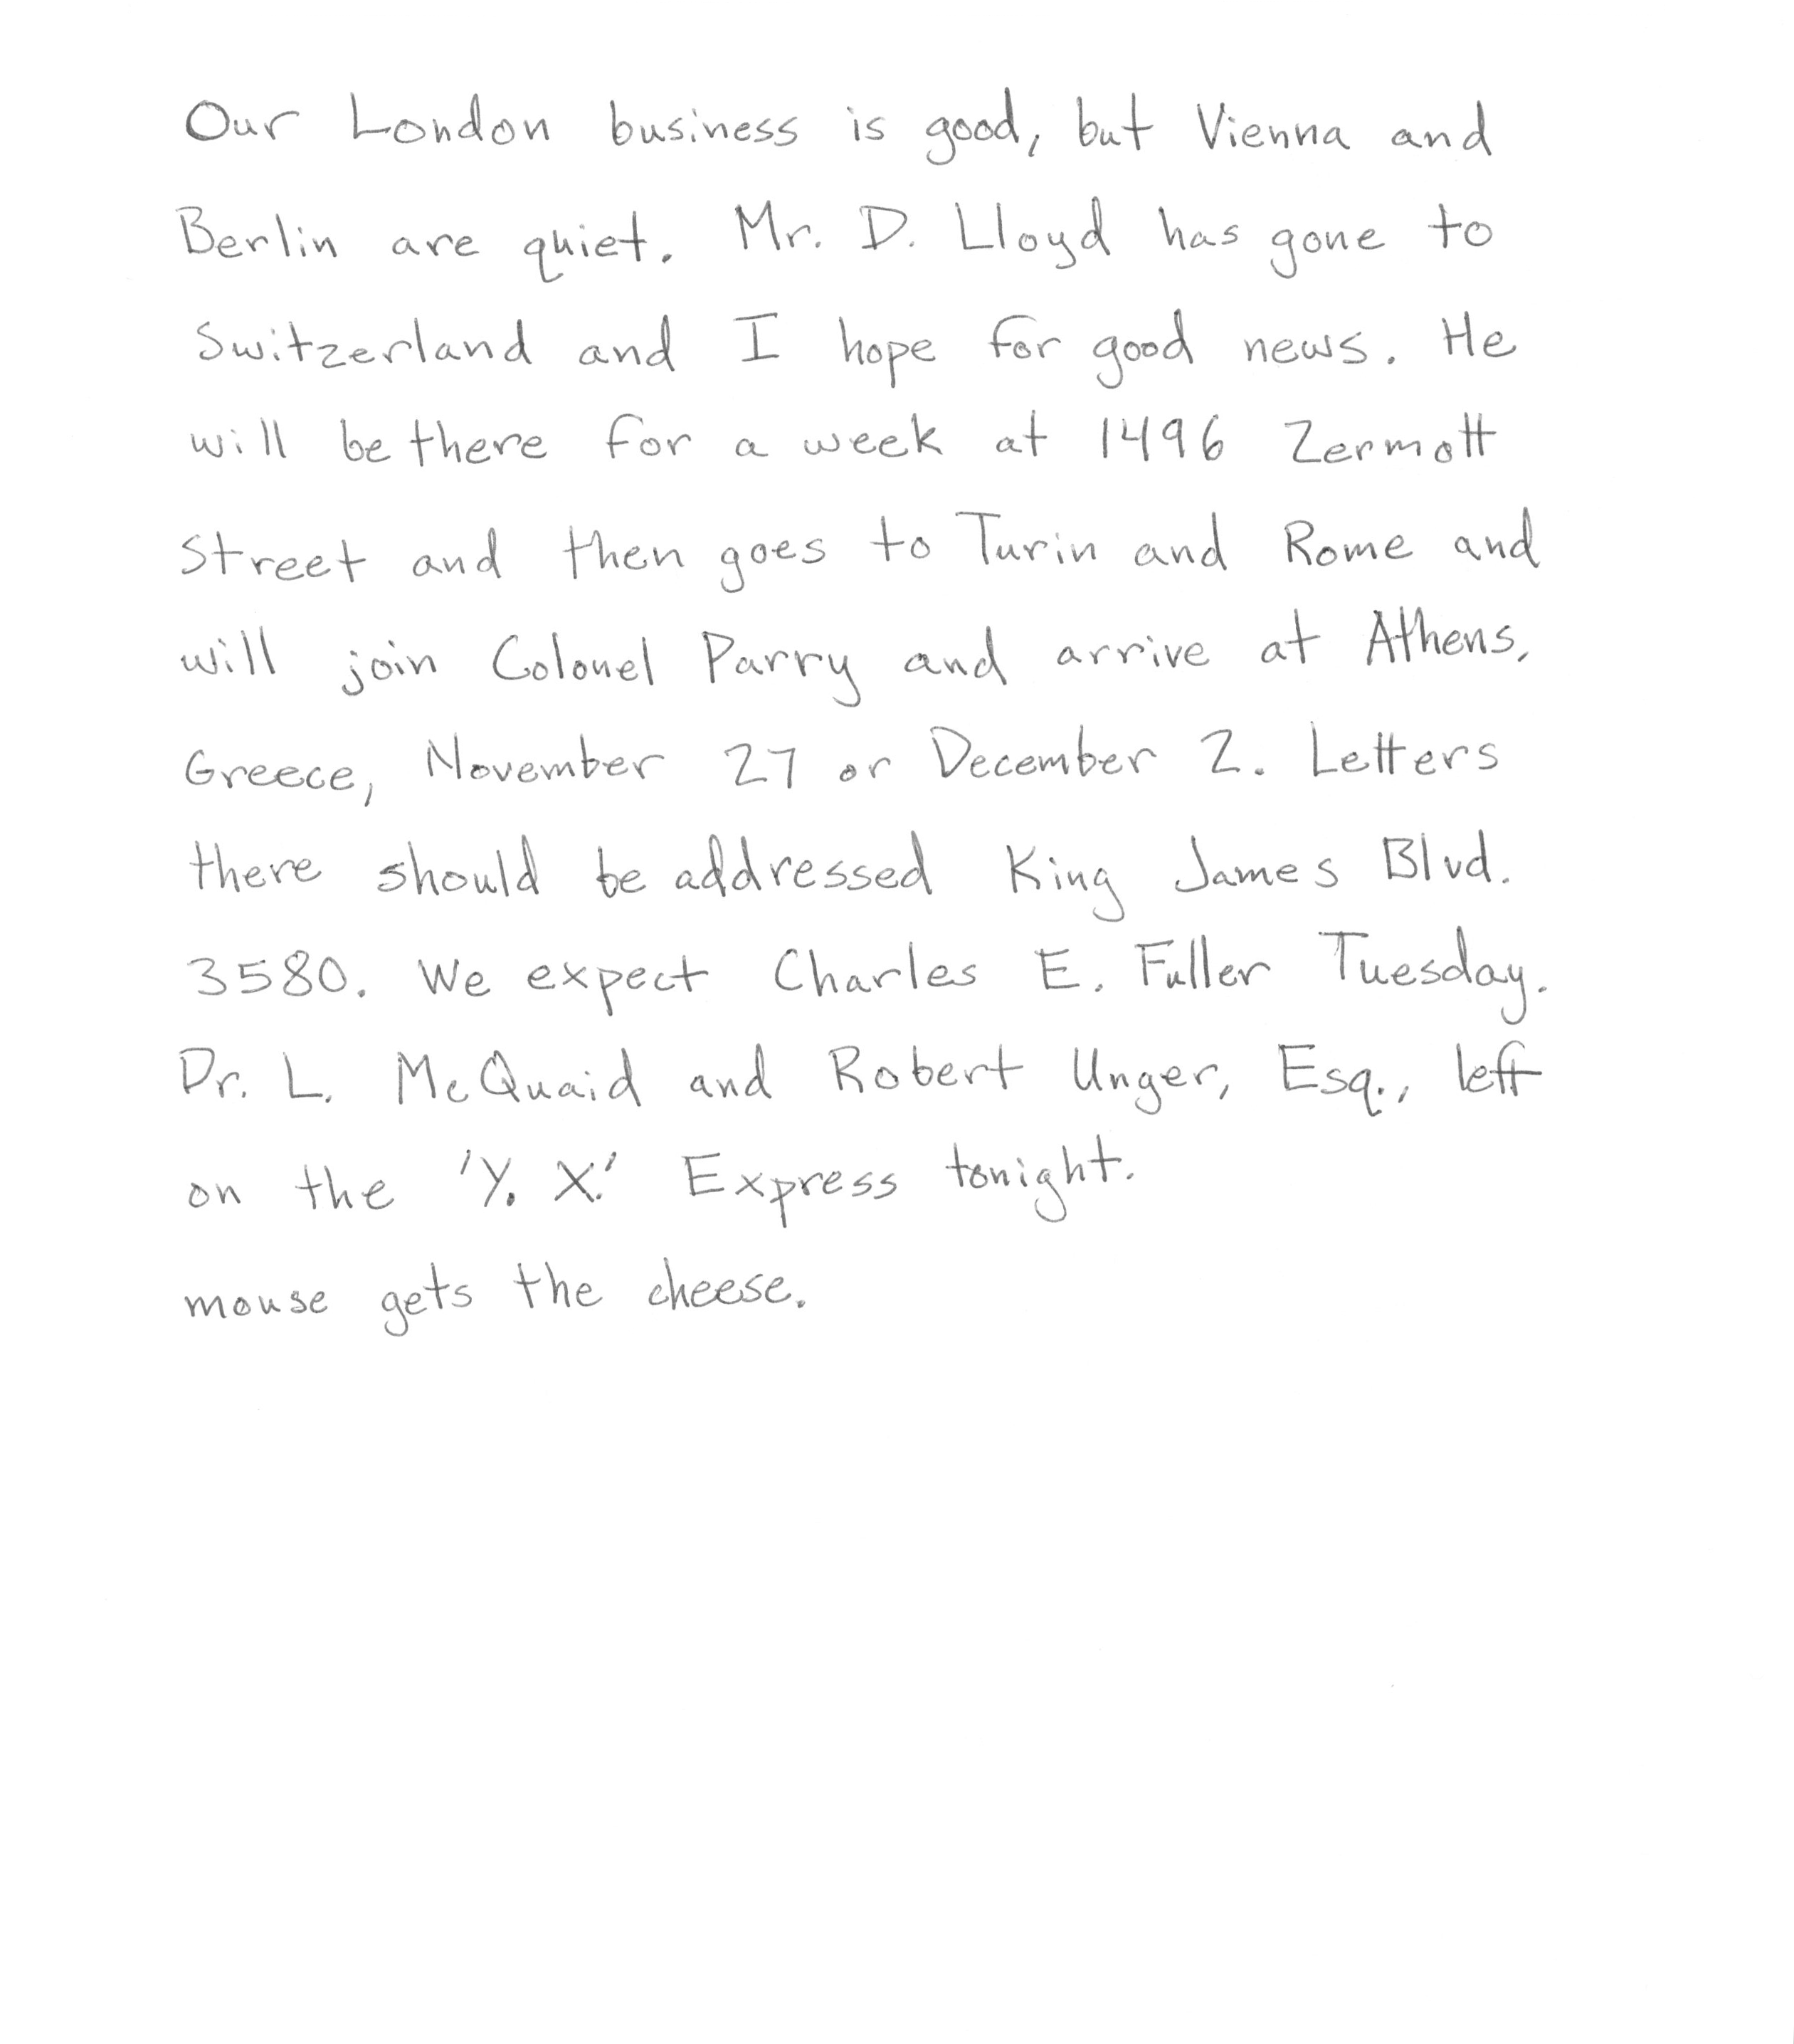 Our London business is good, but Vienna and
Berlin are quiet. Mr. D. Lloyd has gone to
Switzerland and I hope for good news. He
will be there for a week at 1496 Zermott
Street and then goes to Turin and Rome and
will join Colonel Parry and arrive at Athens,
Greece, November 27 or December 2. Letters
there should be addressed King James Blvd.
3580. We expect Charles E. Fuller Tuesday.
Dr. L. McQuaid and Robert Unger, Esq., left
on the 'Y. X.' Express tonight.
mouse gets the cheese.